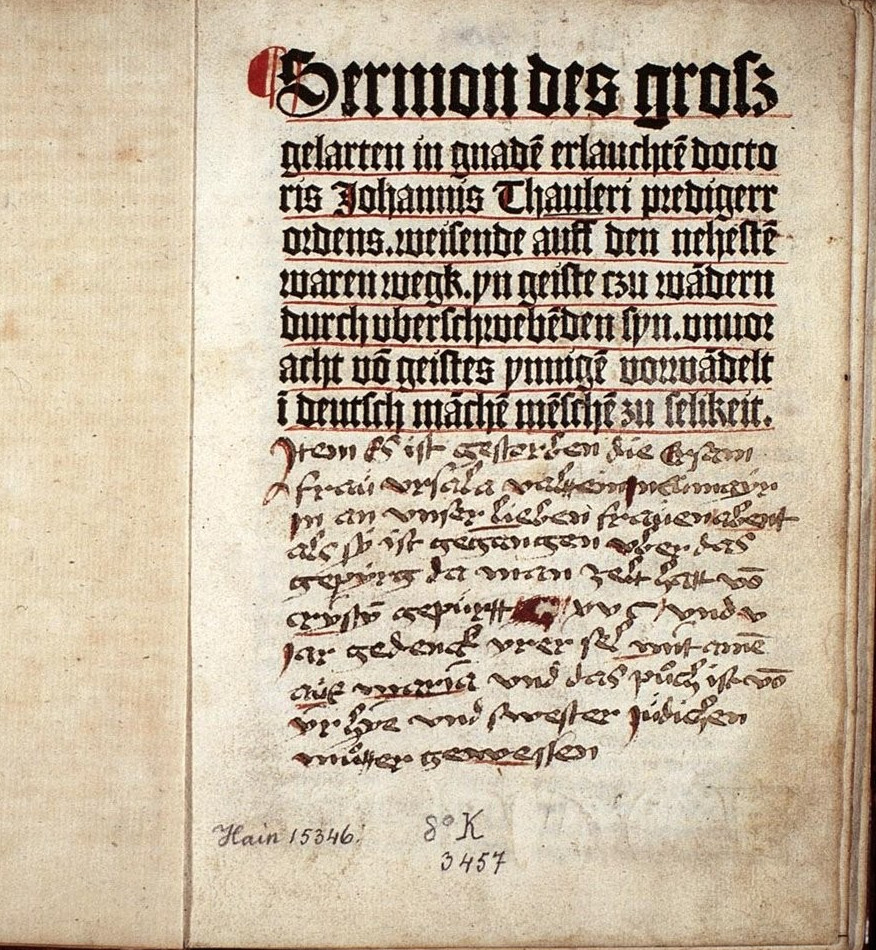 Sermon des groſz
gelartē in gnadē erlauchtē docto
ris Johannis Thauleri predigerr
ordens.weiſende auff den neheſtē
waren wegk.yn geiſte czu wādern
durch vberſchwebēden ſyn.vnuor
acht vō geiſtes ynnigē vorwādelt
ī deutſch māchē mēſchē zu ſelikeit.
Item Es iſt geſtorben die Erſam
frau vrſala
in an vnſer lieben frauen abent
als ſy iſt gegangen vber das
gepyrg da man zelt hatt vō
criſty gepurtt xvc vnd v
Jar gedenck yrer ſel mit amē
aūe maria vnd das puch iſt vō
yr vnd ſweſter
muter geweſſen
Hain 15346.
8° K
3457